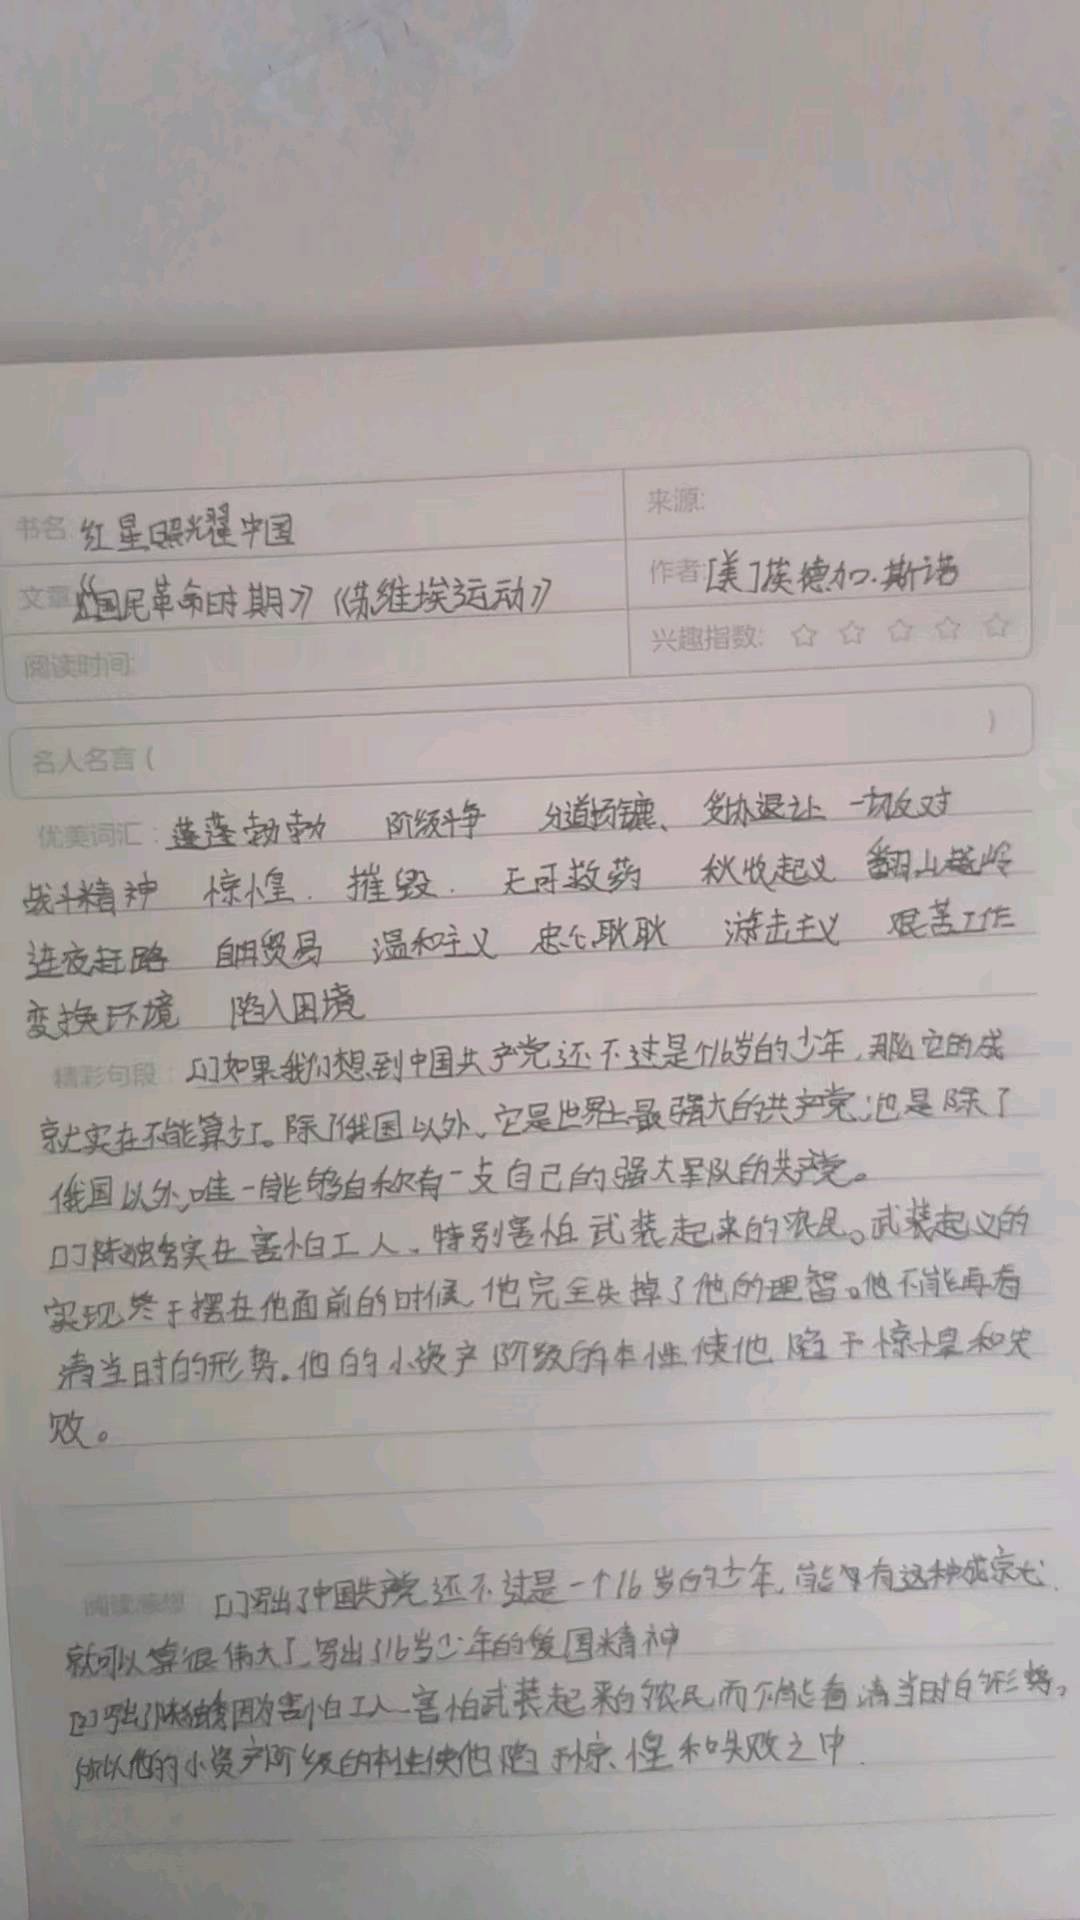 书名: 红星照耀中国
来源:
文章:《国民革命时期》《苏维埃运动》
作者:[美]埃德加·斯诺
阅读时间:
兴趣指数: ☆ ☆ ☆ ☆ ☆
名人名言( )
优美词汇: 蓬蓬勃勃 阶级斗争 分道扬镳、妥协退让 一切反对
战斗精神 惊惶. 摧毁. 无可救药 秋收起义 翻山越岭
连夜赶路 自由贸易 温和主义 忠心耿耿 游击主义 艰苦工作
变换环境 陷入困境
精彩句段: [1]如果我们想到中国共产党还不过是个16岁的少年,那么它的成
就实在不能算少了。除了俄国以外,它是世界上最强大的共产党;也是除了
俄国以外,唯一能够自称有一支自己的强大军队的共产党。
[2]陈独秀实在害怕工人,特别害怕武装起来的农民。武装起义的
实现终于摆在他面前的时候,他完全失掉了他的理智。他不能再看
清当时的形势。他的小资产阶级的本性使他陷于惊惶和失
败。
阅读感想 [1]写出了中国共产党还不过是一个16岁的少年,能够有这种成就,
就可以算很伟大了,写出了16岁少年的爱国精神
[2]写出了陈独秀因为害怕工人、害怕武装起来的农民,而不能看清当时的形势,
所以他的小资产阶级的本性使他陷于惊惶和失败之中.